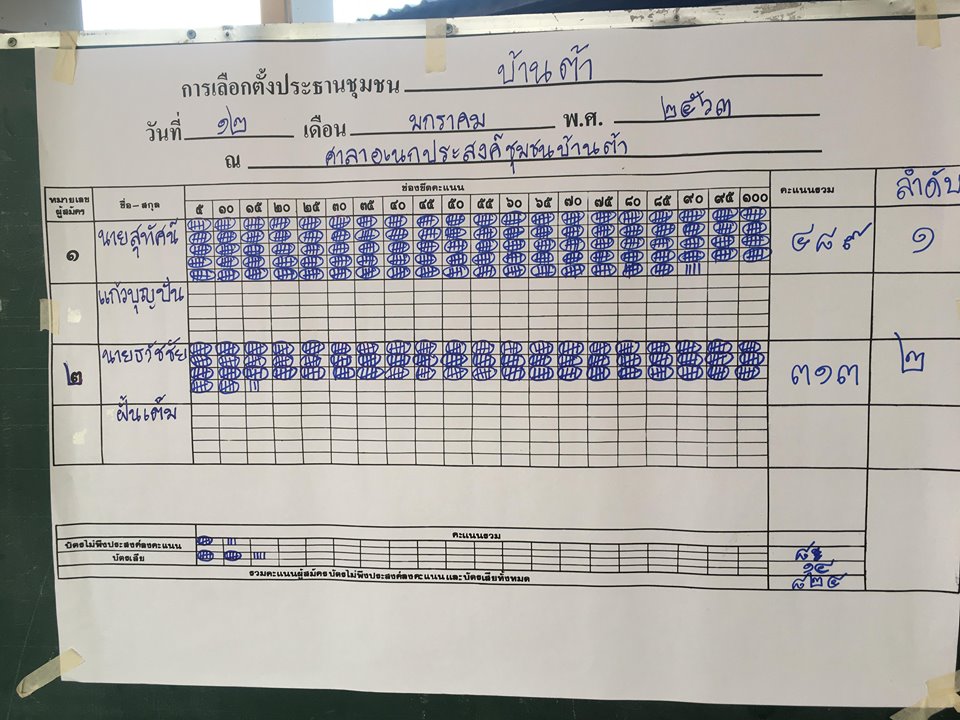 การเลือกตั้งประธานชุมชน บ้านต้า
วันที่ ๑๒ เดือน มกราคม พ.ศ. ๒๕๖๓
ณ ศาลาอเนกประสงค์ชุมชนบ้านต้า
หมายเลขผู้สมัคร ชื่อ-สกุล ช่องขีดคะแนน คะแนนรวม ลำดับ
๕ ๑๐ ๑๕ ๒๐ ๒๕ ๓๐ ๓๕ ๔๐ ๔๕ ๕๐ ๕๕ ๖๐ ๖๕ ๗๐ ๗๕ ๘๐ ๘๕ ๙๐ ๙๕ ๑๐๐
๑ นายสุทัศน์ ๔๘๙ ๑
แก้วบุญปั๋น
๒ นายธวัชชัย ๓๑๓ ๒
ฝั้นเต็ม
คะแนนรวม
บัตรไม่พึงประสงค์ลงคะแนน ๘
บัตรเสีย ๑๔
รวมคะแนนผู้สมัคร บัตรไม่พึงประสงค์ลงคะแนน และบัตรเสียทั้งหมด ๘๒๔